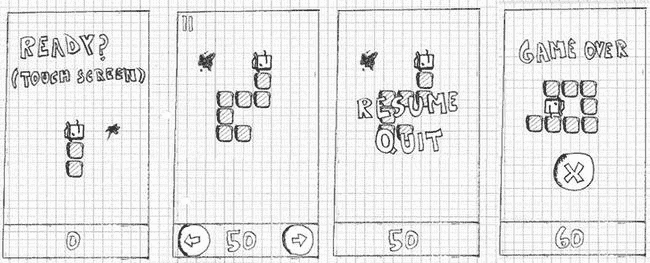 READY?
(TOUCH SCREEN)
0
50
RESUME
QUIT
50
GAME OVER
X
60